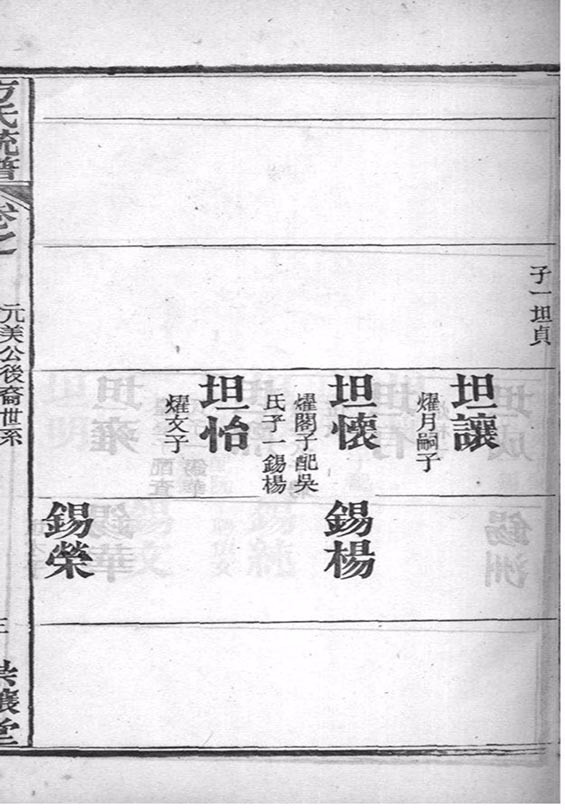 子一坦貞
坦讓
燿月嗣子
坦懷
燿閣子配吳
氏子一錫楊
錫楊
坦怡
燿文子
錫榮
方氏統譜
卷之
元美公後裔世系
三